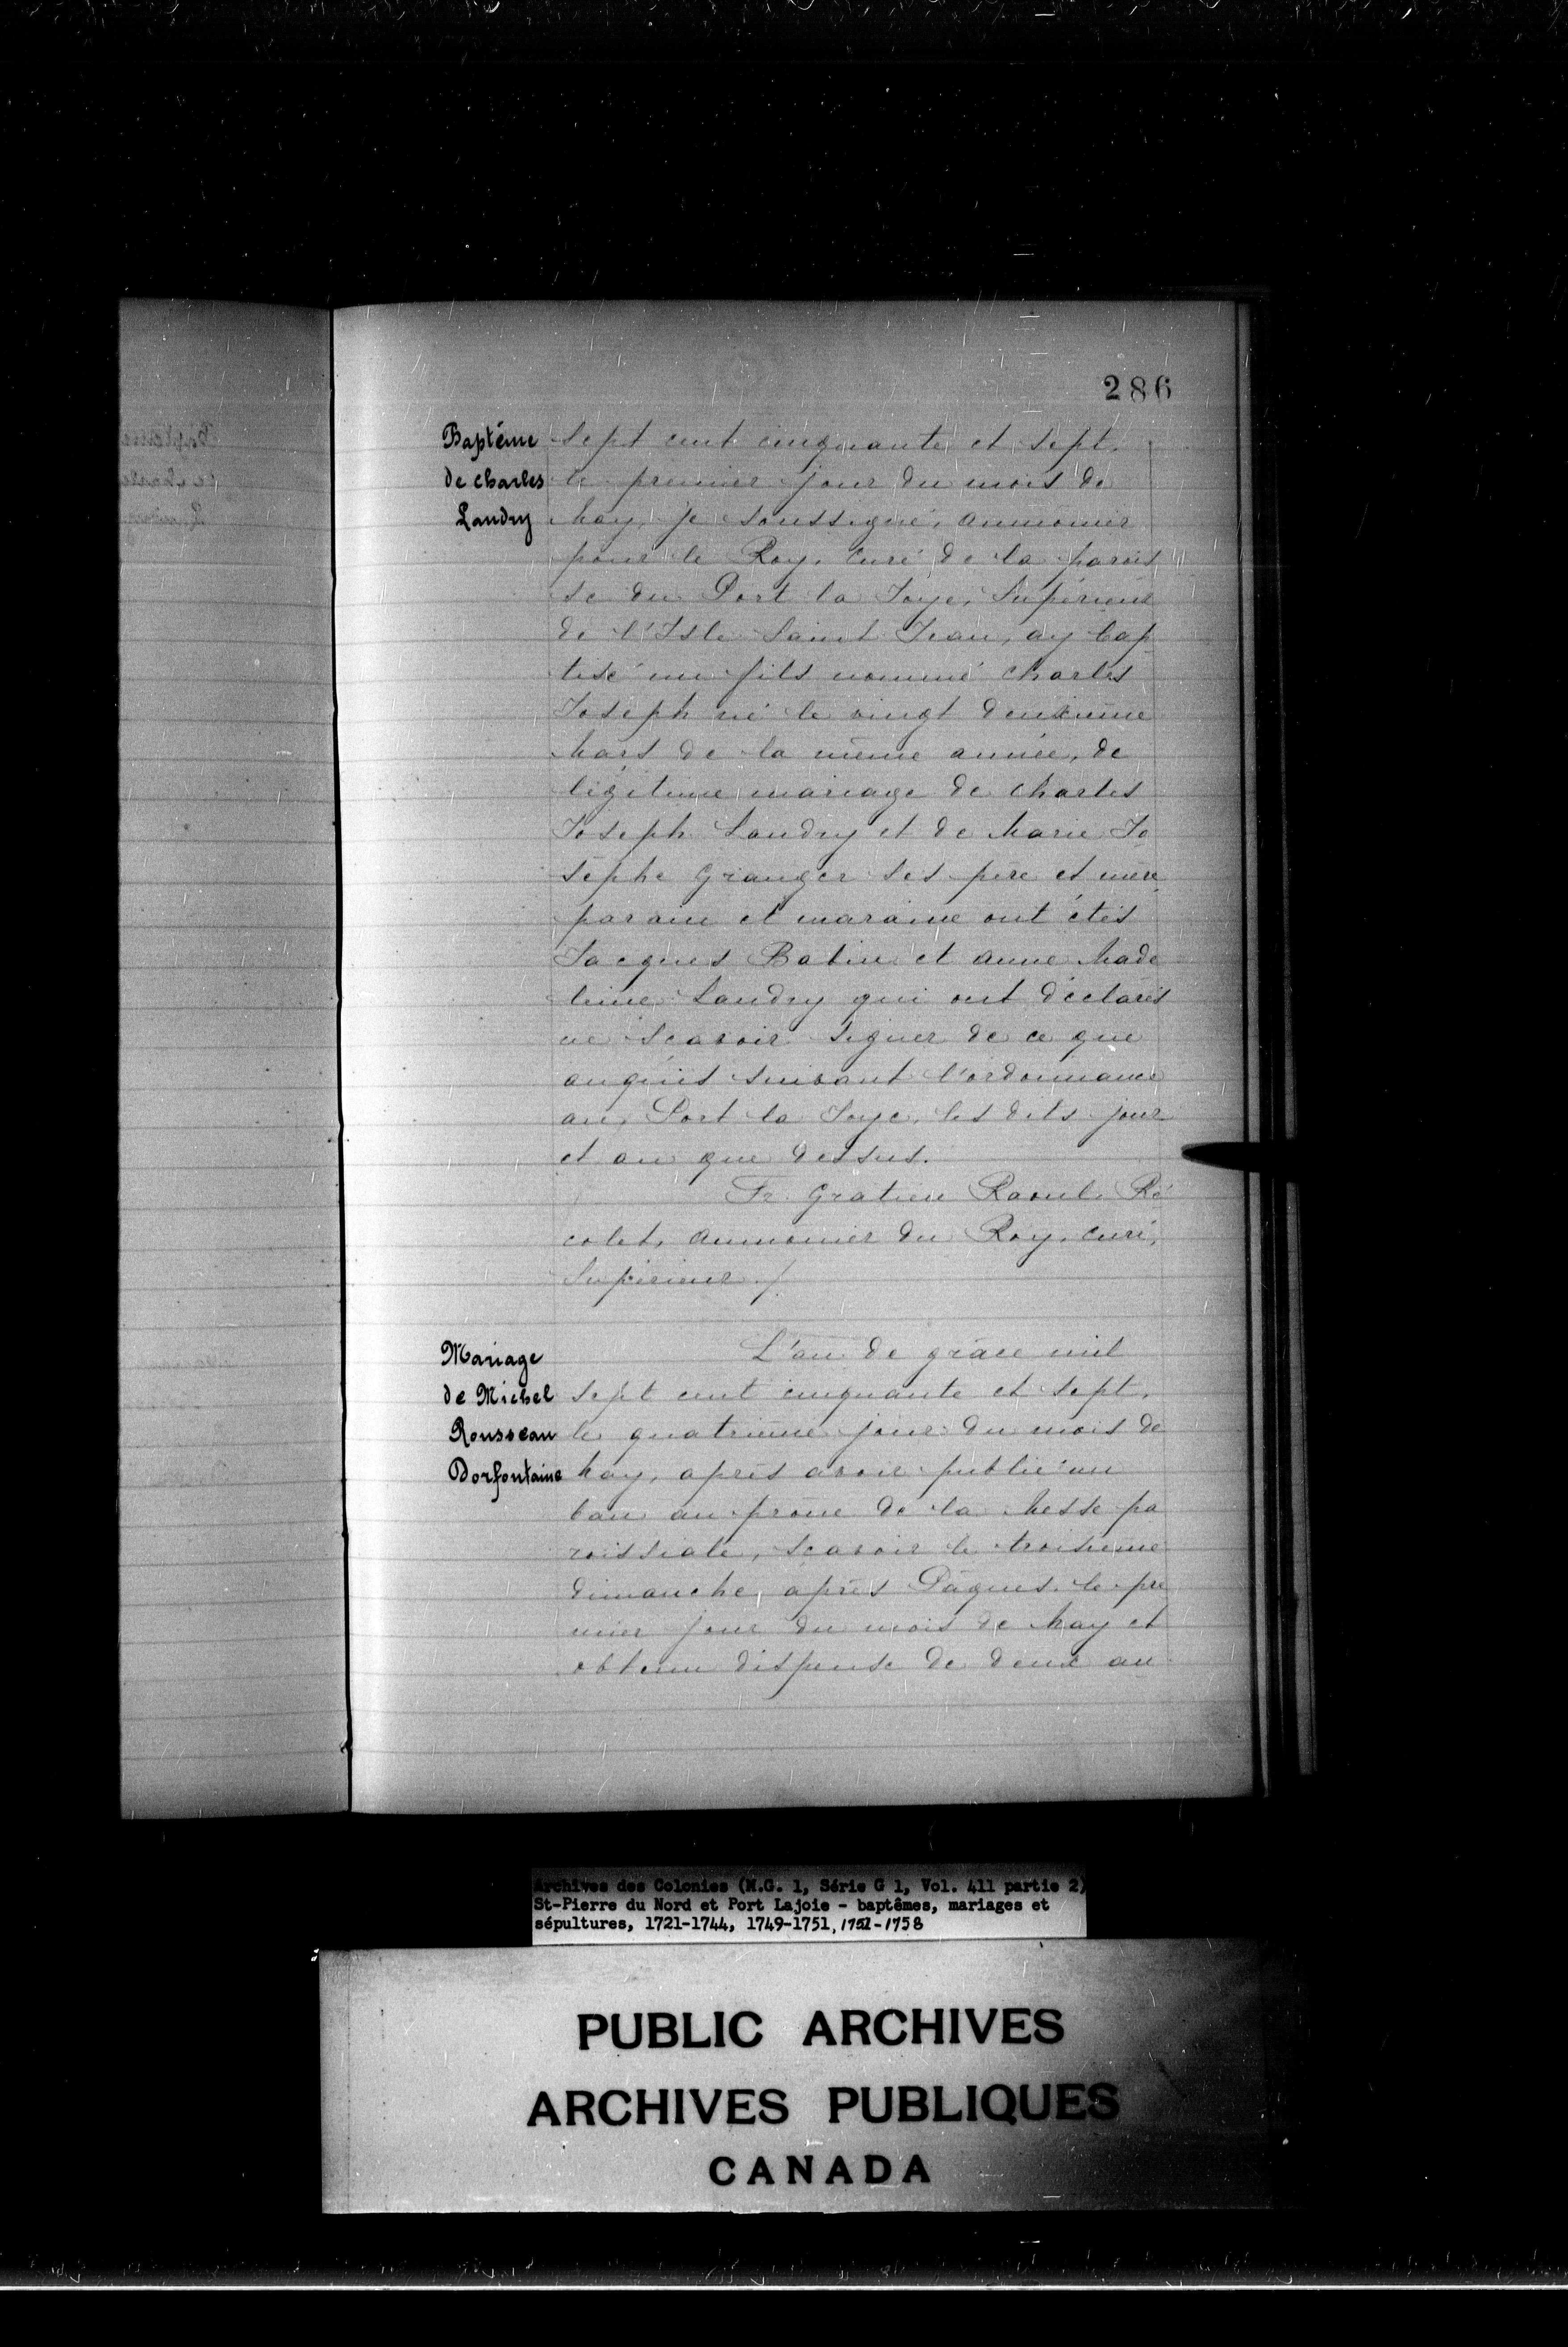 286
Baptéme
de charles
Landry
sept cent cinquante et sept,
le premier jour du mois de
May, je soussigné, aumonier
pour le Roy, curé de la parois
se du Port la Joye, Supérieur
de l'Isle Saint Jean, ay bap
tisé un fils nommé charles
Joseph né le vingt deuxième
Mars de la même année, de
légitime mariage de charles
Joseph Landry et de Marie Jo
sephe Granger ses père et mère
parain et maraine ont étés
Jacques Babin et anne Made
leine Landry qui ont déclarés
ne scavoir signer de ce que
enquis suivant l'ordonnance
au Port la Joye, les dits jour
et an que dessus.
Fr. Gratien Raoul, Ré
colet, aumonier du Roy, curé,
Supérieur ./.
Mariage
de Michel
Rousseau
Dorfontaine
L'an de grâce mil
sept cent cinquante et sept,
le quatrième jour du mois de
May, après avoir publié un
ban au prône de la Messe pa
roissiale, scavoir le troisième
dimanche après Pâques le pre
mier jour du mois de May et
obtenu dispense de deux au
Archives des Colonies (M.G. 1, Série G 1, Vol. 411 partie 2)
St-Pierre du Nord et Port Lajoie - baptêmes, mariages et
sépultures, 1721-1744, 1749-1751, 1752-1758
PUBLIC ARCHIVES
ARCHIVES PUBLIQUES
CANADA